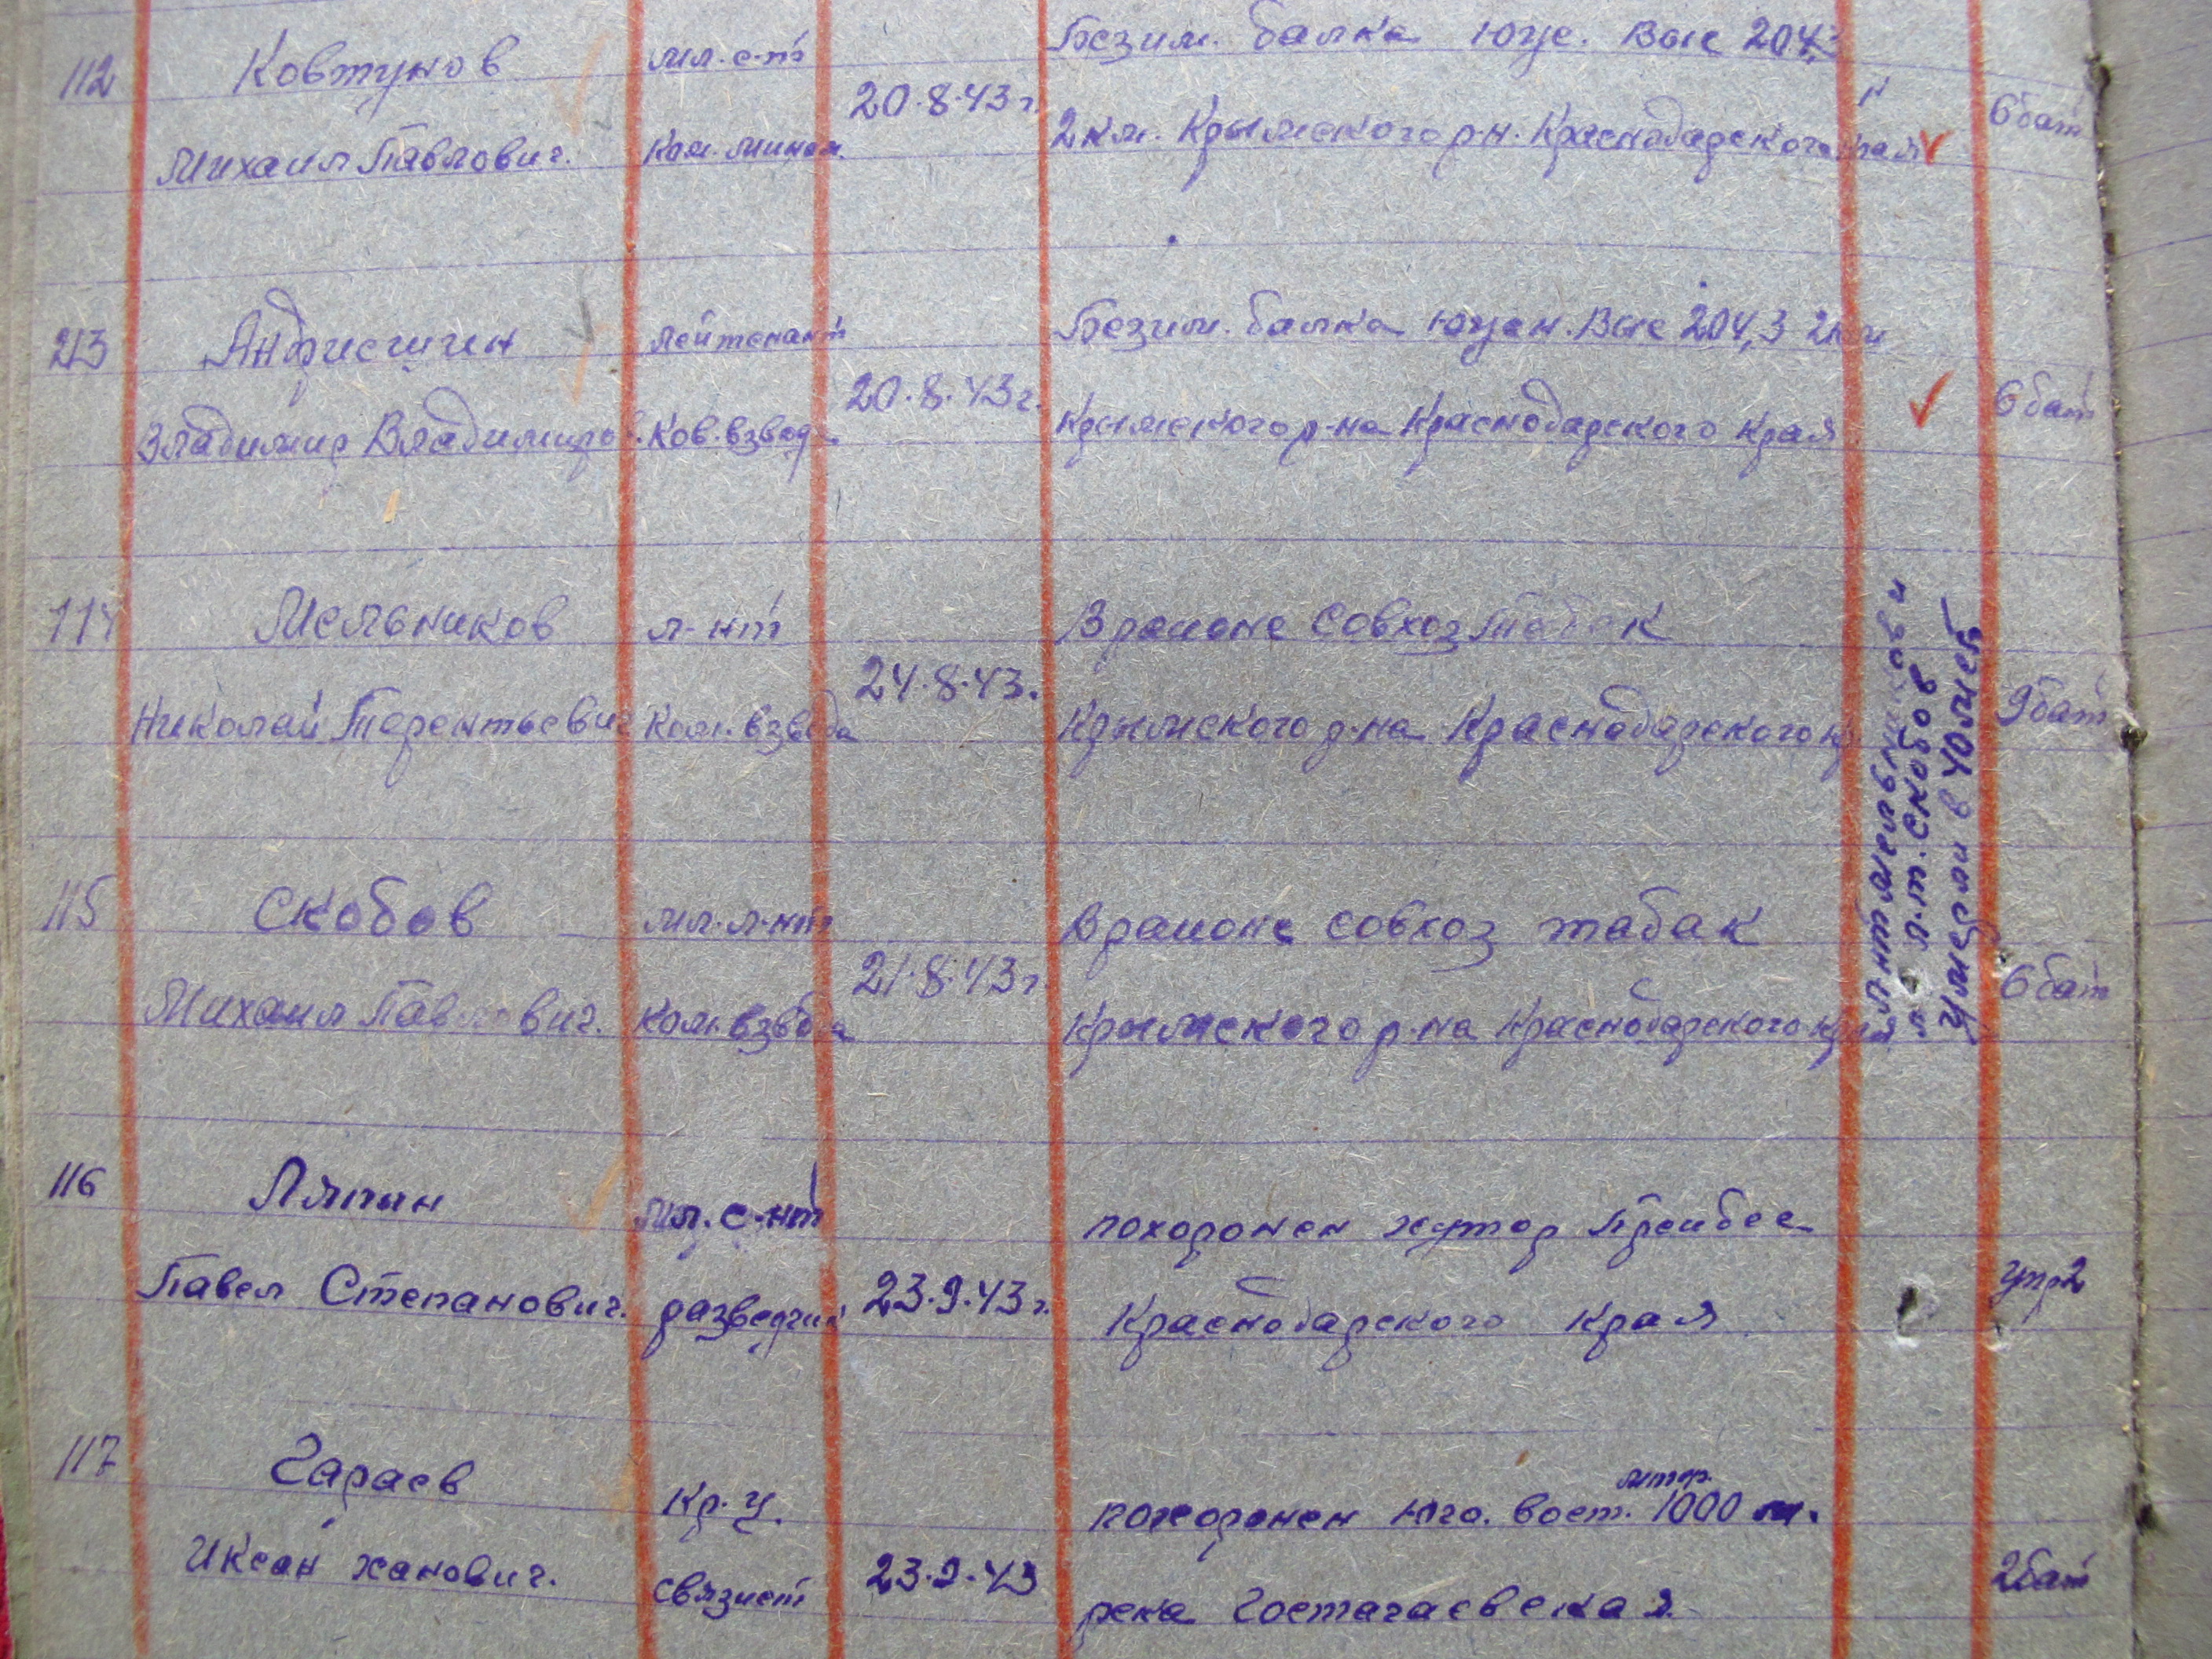 112 Ковтунов мл. с-т Безим. балка южн. Выс 204,3
Михаил Павлович. Ком. мином. 20.8.43 г. 2 км. Крымского р-н. Краснодарского края 6 бат
113 Андрисшин лейтенант Безим. балка южн. Выс 204,3 2 км
Владимир Владимиров. Ков. взвода 20.8.43 г. Крымского р-на Краснодарского края 6 бат
114 Мельников л-нт В районе Совхоз Табак
Николай Терентьевич Ком. взвода 24.8.43. Крымского р-на Краснодарского к 9 бат
115 Скобов мл. л-нт В районе совхоз табак
Михаил Павлович. Ком. взвода 21.8.43 г Крымского р-на Краснодарского края 6 бат
л-нт Мельников и
л-т. Скобов
Умерли в 40 медб
116 Ляпин мл. с-нт похоронен хутор
Павел Степанович. разведчик 23.9.43 г. Краснодарского края упр 2
117 Гараев Кр-ц. похоронен юго. вост. 1000 м.
мтр.
Иксан ханович. связист 23.9.43 река Гостагаевская 2 бат